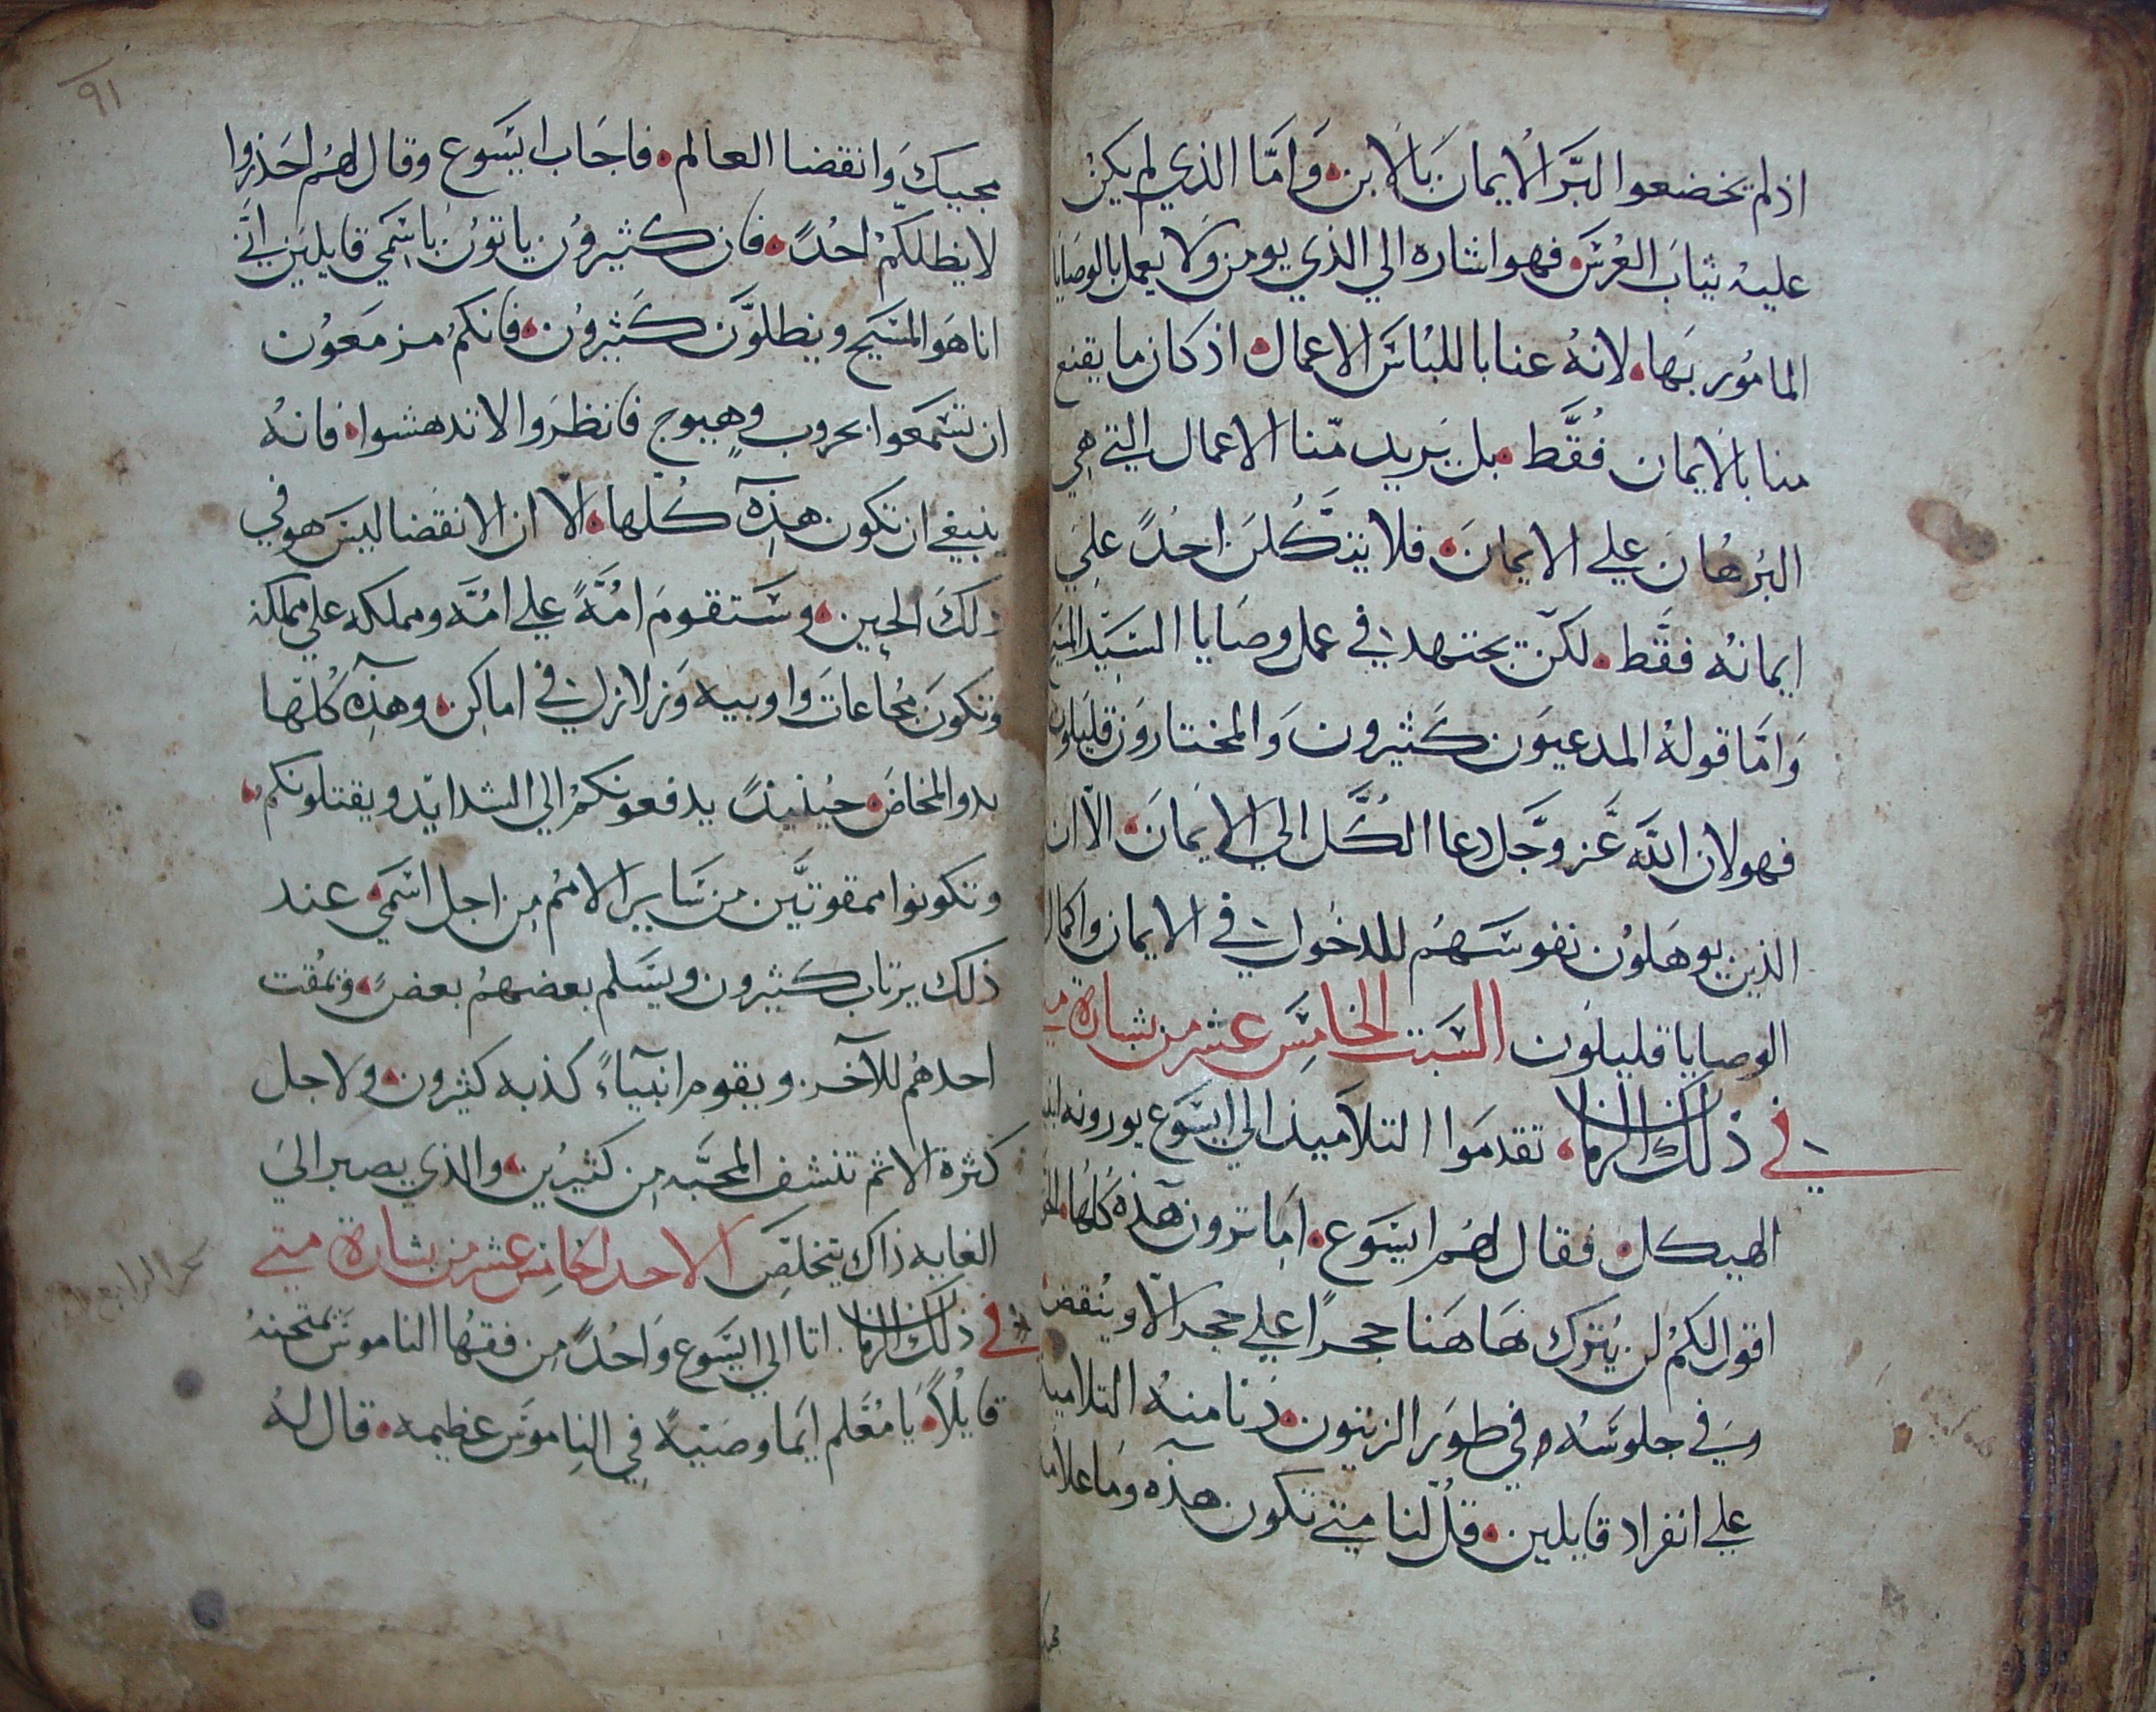 اذ لم يخضعوا لبَّر الاُيمان بَالابن وَامَّا الذي لم يكن
عليه ثيابَ العُرسَ فهو اشاره الي الذي يومن وَلا يعمل بالوصايا
المامُور بهَا لانهُ عنا باللبُاسَ الاعمال اذ كان ما يقنع
منا بالايمان فُقَّط بل يَريد منّا الاعمال التي هي
البُرهُان علي الايمان فلا يتَّكُلن احُدً علي
ايمانهُ فقَّط لكن يجتهد في عمل وصَايا السَيّد المسيح
وَامَّا قولهُ المدعيوَن كَثيرون وَالمختاروَن قليلون
فهو لان اللَّه عَّز وَّجَل دعا الكُّل الي الايَمانَ الّا ان
الذين يوهَلوُن نفوسَهُم للدخُول في الايمان واكمال
الوصايا قليلوُن السَبَت الخامِسَ عشر من بشارة
في ذلك الزمان تقدموَا التلاميذ الي ايسَوع يورونه
الهيكل فقال لهُم ايسَوع امَا ترون هَذهُ كَلهُا
اقول لكمُ لن يُترك هَاهَنا حجرًا علي حجر الّا وينُقض
وَفي جلوسَهُ في طوَر الزيتون دَنا منهُ التلاميذ
علي انفراد قايلين قُل لنا متي تكون هذه ومَا علامة
٩١
مجييكَ وانقضا العالم فاجَاب ايسَوع وقال لهُم احَذرُوا
لا يظلكّمُ احُدً فان كثيروُن ياتوُن باسَمي قايليَن انيّ
انا هوَ المسَيح ويظلوَّن كَثيروُن فانكمُ مزمَعُون
ان تسَمعَوا بحروب وهيوج فانظرَوا لا تدهشوا فانهُ
ينبغي ان تكون هذِه كُلها الّا ان الانقَضا ليسَ هو في
ذلكَ الحين وسَتقومَ امُّةً علي امُّة ومملكه علي مملكه
وتكونَ مجُاعاتَ واوبيه وَزلازل في اماكِن وهذه كُلهَا
بدو المخاضَ حيُنيذً يدفعونكمُ الي الشدايد ويقتلونكمُ
وتكونوا ممقوتيَّن من سَاير الامُم من اجل اسَمي عند
ذلك يرتاب كثيرون ويسَلم بعضهمُ بعضً وتمُقت
احدهمُ للآخر ويقوم انبيآءً كذبه كثيرون ولاجل
كثرة الاثم تنشف المحبَّه من كثيرُين والذي يصبر الي
الغايه ذاك يتخلصَ الاحد الخامِسَ عشر من بشارة متي
في ذلك الزمان اتا الي ايسَوع وَاحُدً من فقهُا الناموسَ يمتحنهُ
قايُلاً يَا مُعَلم ايَما وصَيّة في النِاموَسَ عظيمه قال لهُ